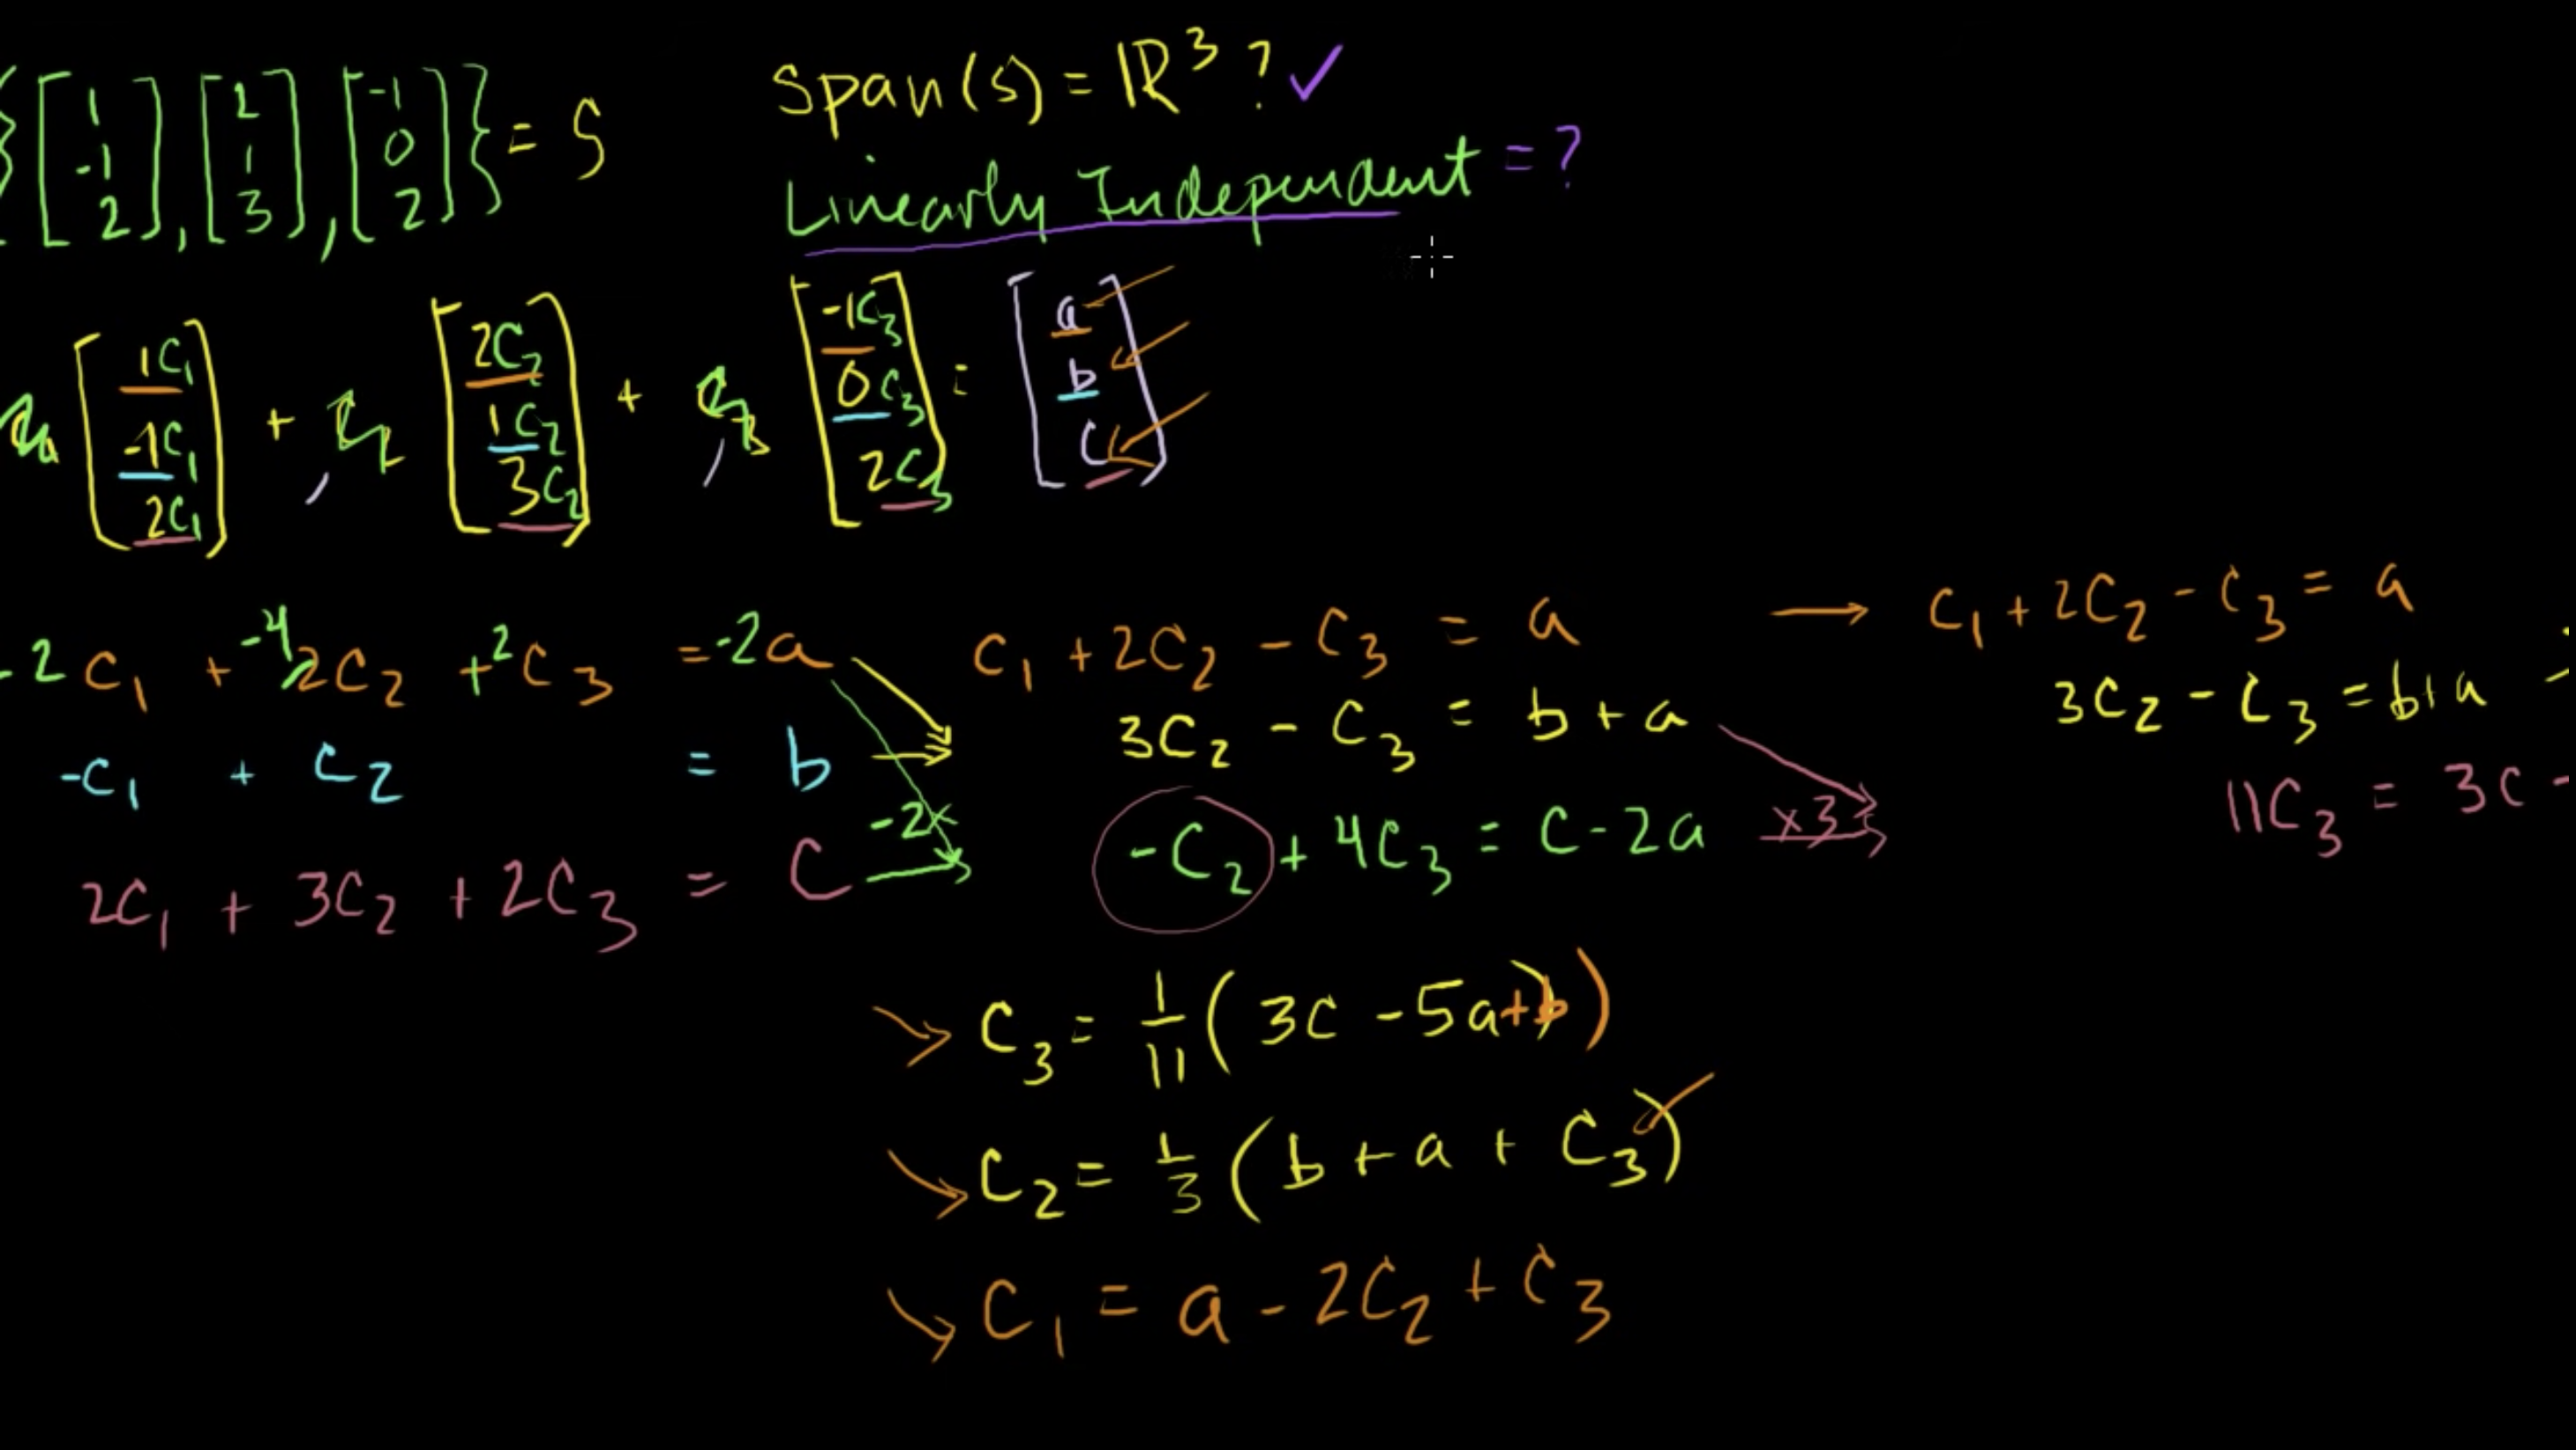 {[1 -1 2], [2 1 3], [-1 0 2]} = S
Span(s) = ℝ³ ? ✓
Linearly Independent = ?
[1C₁ -1C₁ 2C₁] + [2C₂ 1C₂ 3C₂] + [-1C₃ 0C₃ 2C₃] = [a b c]
-2C₁ + -4 2C₂ + 2C₃ = -2a
-C₁ + C₂ = b
2C₁ + 3C₂ + 2C₃ = C
-2x
C₁ + 2C₂ - C₃ = a
3C₂ - C₃ = b + a
-C₂ + 4C₃ = C - 2a
x3
C₁ + 2C₂ - C₃ = a
3C₂ - C₃ = b+a
11C₃ = 3C -
C₃ = 1/11 (3C - 5a + b)
C₂ = 1/3 (b + a + C₃)
C₁ = a - 2C₂ + C₃